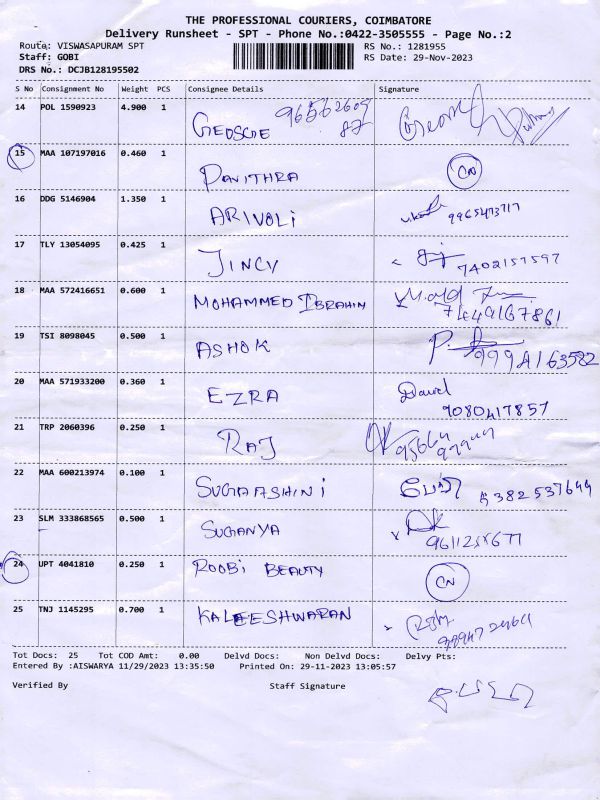 THE PROFESSIONAL COURIERS, COIMBATORE
Delivery Runsheet - SPT - Phone No.:0422-3505555 - Page No.:2
Route: VISWASAPURAM SPT RS No.: 1281955
Staff: GOBI RS Date: 29-Nov-2023
DRS No.: DCJB128195502
S No Consignment No Weight PCS Consignee Details Signature
14 POL 1590923 4.900 1 GEOSGE
15 MAA 107197016 0.460 1 PAVITHRA CN
16 DDG 5146904 1.350 1 ARIVOLI
17 TLY 13054095 0.425 1 JINCY 7402157597
18 MAA 572416651 0.600 1 MOHAMMED IBRAHIM 7449167861
19 TSI 8098045 0.500 1 ASHOK 9994163582
20 MAA 571933200 0.360 1 EZRA David
9080417857
21 TRP 2060396 0.250 1 RAJ
22 MAA 600213974 0.100 1 SUGAASHINI
23 SLM 333868565 0.500 1 SUGANYA
24 UPT 4041810 0.250 1 ROOBI BEAUTY CN
25 TNJ 1145295 0.700 1 KALEESHWARAN
Tot Docs: 25 Tot COD Amt: 0.00 Delvd Docs: Non Delvd Docs: Delvy Pts:
Entered By :AISWARYA 11/29/2023 13:35:50 Printed On: 29-11-2023 13:05:57
Verified By Staff Signature